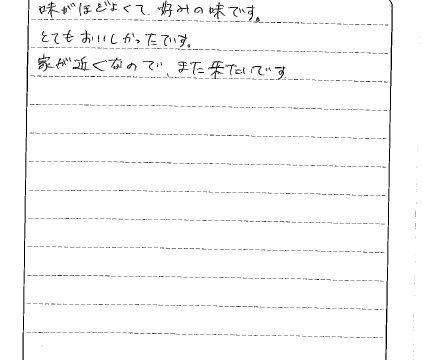 味がほどよくて、好みの味です。
とてもおいしかったです。
家が近くなので、また来たいです